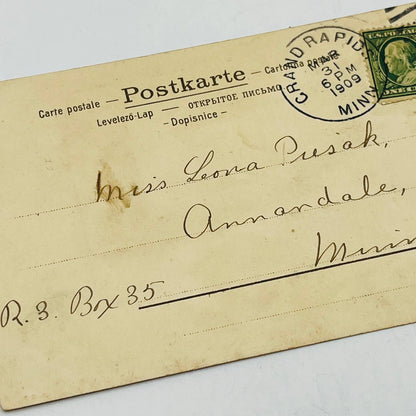 Postkarte
Carte postale — Cartolina po
Levelező-Lap — ОТКРЫТОЕ ПИСЬМО
- Dopisnice -
GRAND RAPID
MAR
3
6 PM
1909
MINN
U.S. POSTAG
ONE C
Miss Leona
Annandale,
Minn
R. 3. Box 35